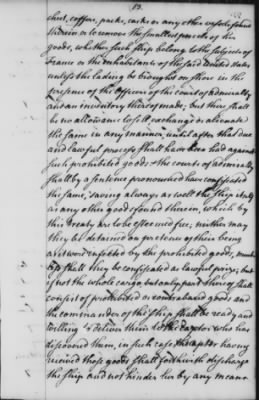 13.
chest, coffers, packs, casks or any other vessels found
therein or to remove the smallest parcels of her
goods, whether such ship belong to the subjects of
France or the inhabitants of the said United States
unless the lading be brought on shore in the
presence of the officers of the court of admiralty
and an inventory thereof made; but there shall
be no allowance to sell, exchange or alienate
the same in any manner, until after that due
and lawful process shall have been had against
such prohibited goods & the courts of admiralty
shall by a sentence pronounced have confiscated
the same, saving always as well the ship itself
as any other goods found therein, which by
this treaty are to be esteemed free; neither may
they be detained on pretence of their being
as it were infected by the prohibited goods, much
less shall they be confiscated as lawful prize; but
if not the whole cargo but only part thereof shall
consist of prohibited or contraband goods and
the commander of the ship shall be ready and
willing to deliver them to the captor who has
discovered them, in such case the captor having
received those goods shall forthwith discharge
the ship and not hinder her by any means